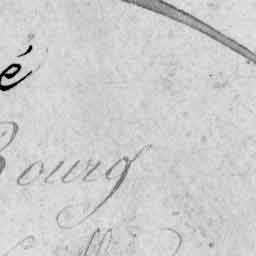 é
Bourg